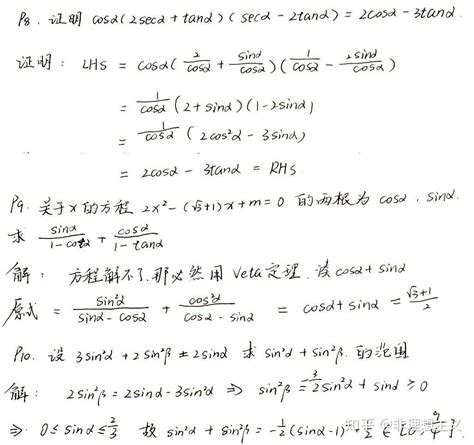 P8. 证明 cosα(2secα+tanα)(secα-2tanα)=2cosα-3tanα.
证明: LHS = cosα(2/cosα + sinα/cosα)(1/cosα - 2sinα/cosα)
= 1/cosα (2+sinα)(1-2sinα)
= 1/cosα (2cos²α-3sinα)
= 2cosα-3tanα = RHS
P9. 关于x的方程 2x²-(√3+1)x+m=0 的两根为 cosα, sinα.
求 sinα/(1-cotα) + cosα/(1-tanα)
解: 方程解不了,那必然用 Veta 定理. 凑 cosα+sinα
原式 = sin²α/(sinα-cosα) + cos²α/(cosα-sinα) = cosα+sinα = (√3+1)/2
P10. 设 3sin²α+2sin²β=2sinα 求 sin²α+sin²β 的范围
解: 2sin²β=2sinα-3sin²α ⇒ sin²β=-3/2sin²α+sinα≥0
⇒ 0≤sinα≤2/3 故 sin²α+sin²β=-1/2(sinα-1)²+1/2∈[0,4/9]
知乎 @非理想主义